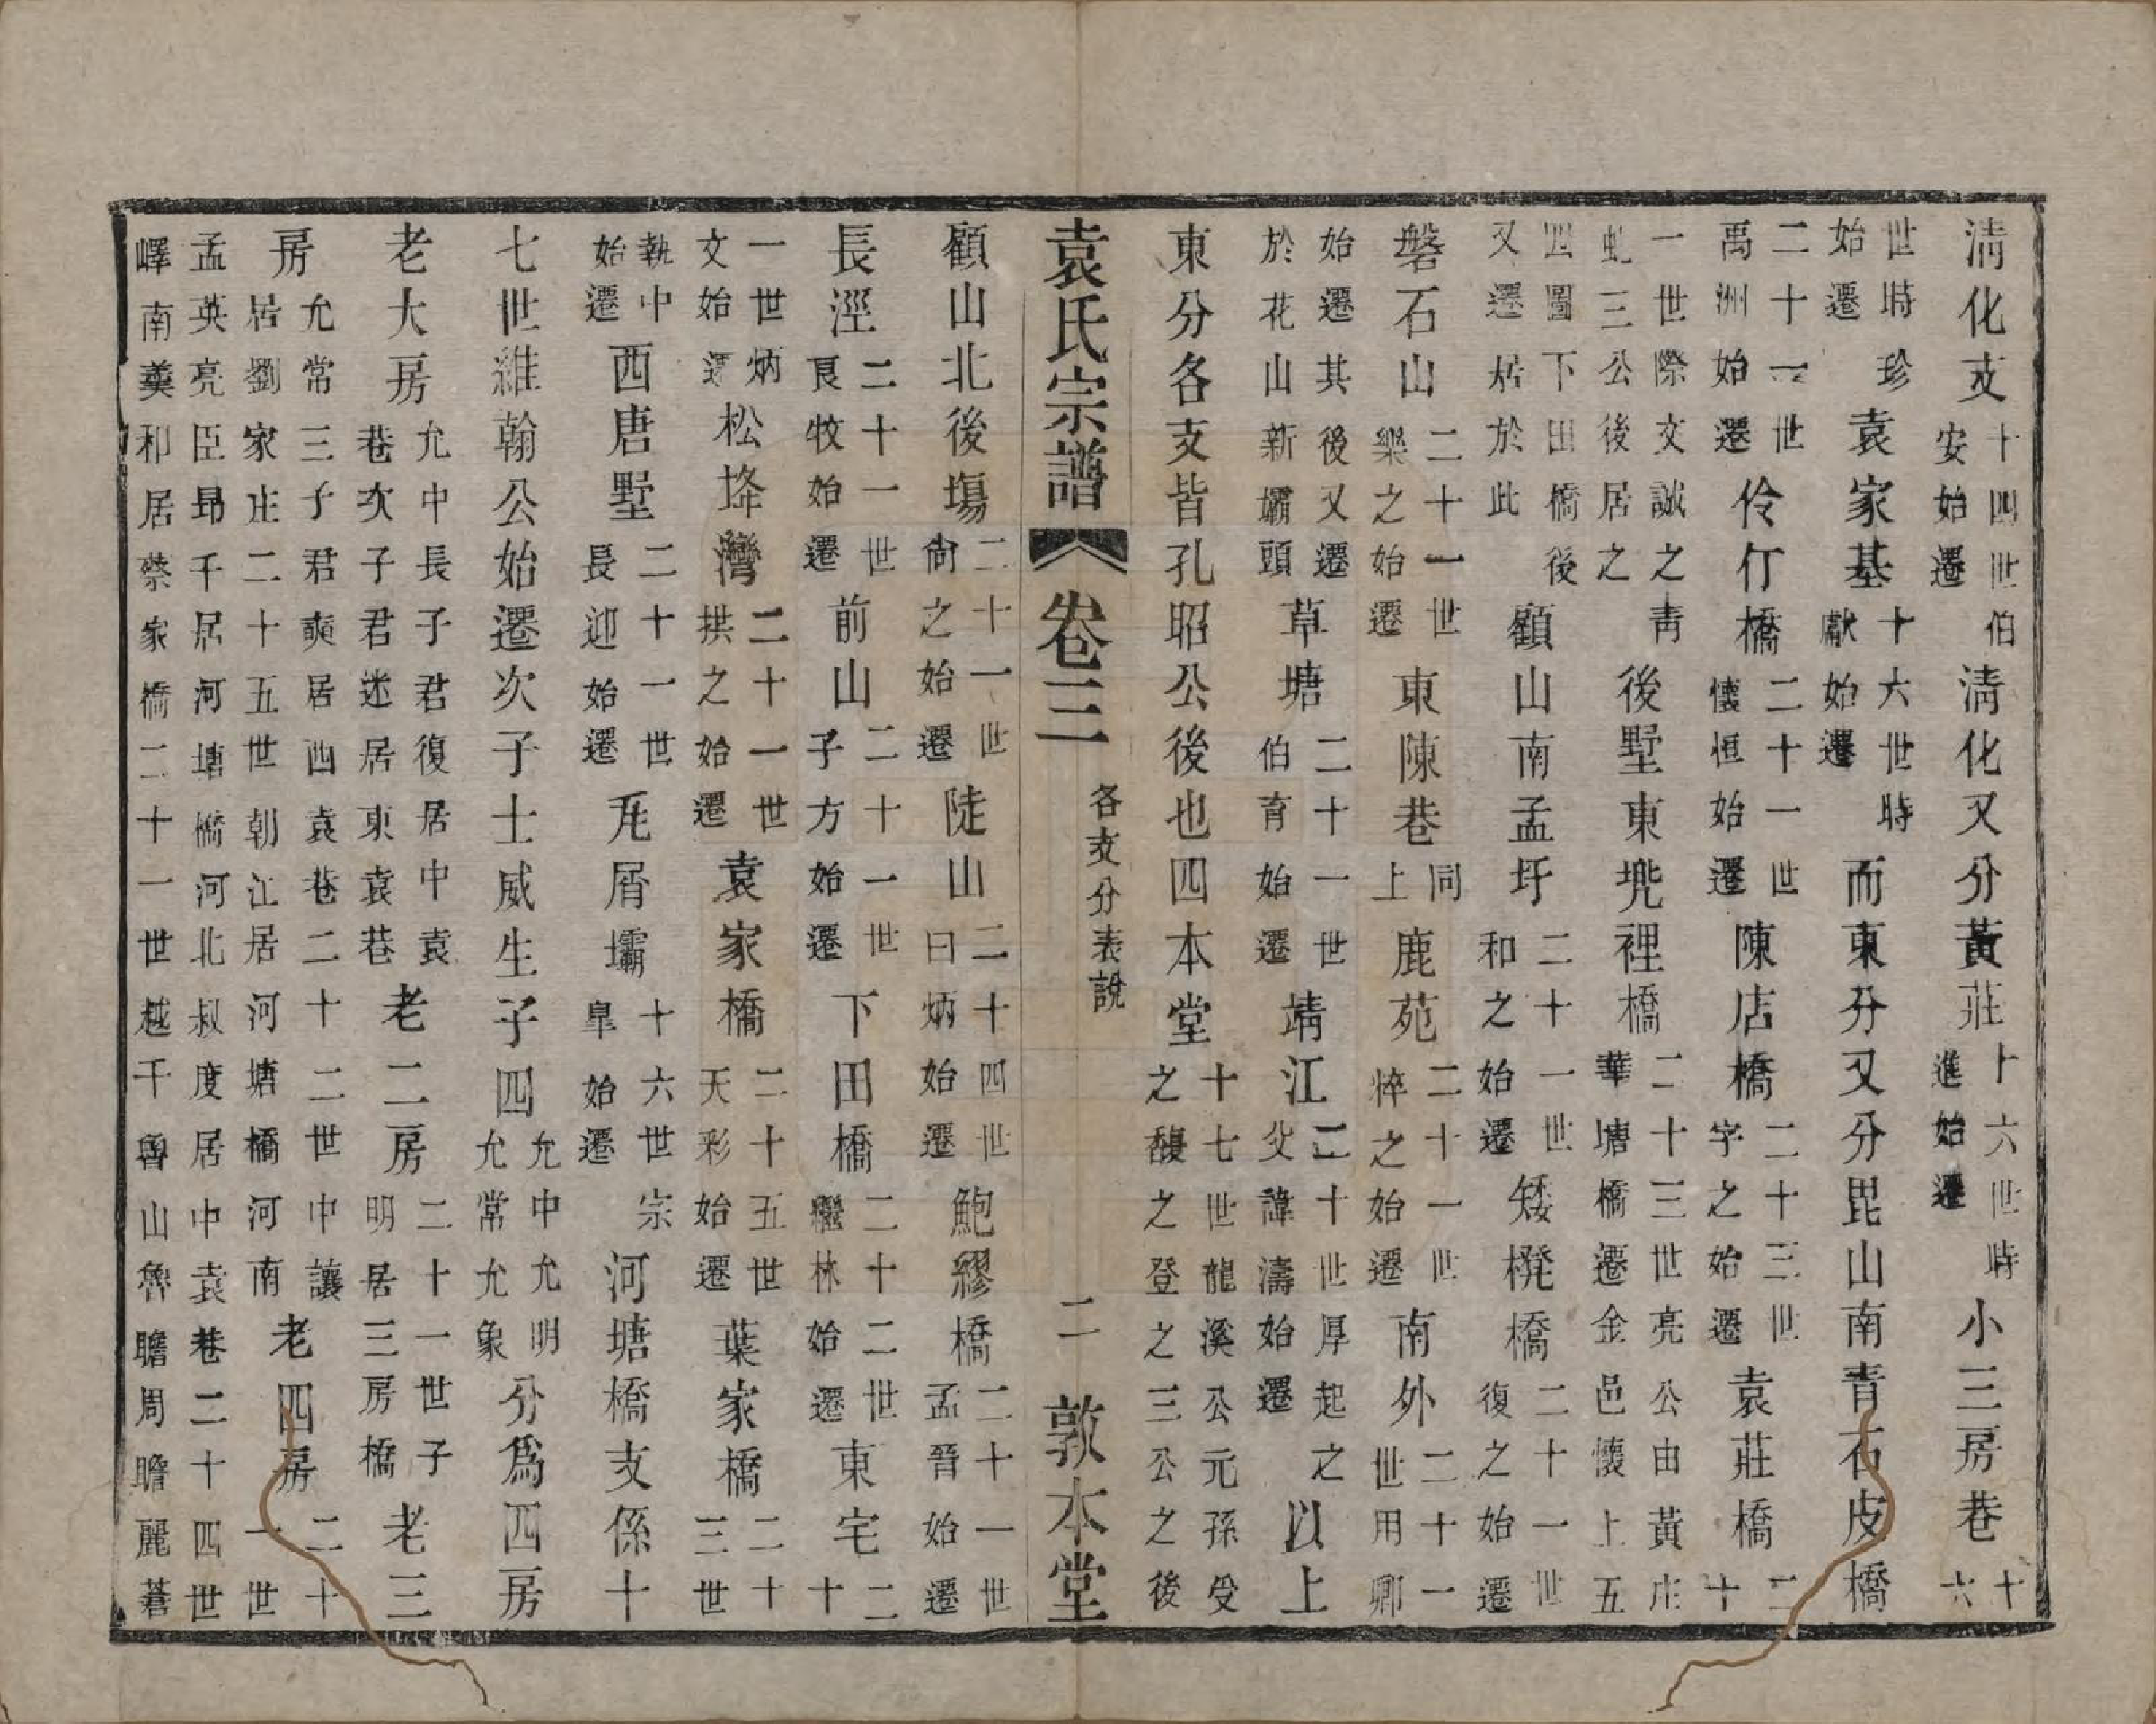 清化支十四世伯安始遷清化又分黃莊十六世時進始遷小三房巷十六
世時珍始遷袁家基十六世時獻始遷而東分又分毘山南青石皮橋
二十一世禹洲始遷伶仃橋二十一世懷恒始遷陳店橋二十三世字之始遷袁莊橋二十
一世際文誠之青虬三公後居之後墅東兠裡橋二十三世亮公由黃庄華塘橋遷金邑懷上五
四圖下田橋後又遷居於此顧山南孟圩二十一世和之始遷矮櫈橋二十一世復之始遷
磐石山二十一世樂之始遷東陳巷同上鹿苑二十一世悴之始遷南外二十一世用卿
始遷其後又遷於花山新壩頭草塘二十一世伯育始遷靖江二十世厚起之父諱濤始遷以上
東分各支皆孔昭公後也四本堂十七世龍溪公元孫受之馥之登之三公之後
袁氏宗譜 卷三 各支分表說 二 敦本堂
顧山北後塲二十一世尙之始遷陡山二十四世曰炳始遷鮑繆橋二十一世孟晉始遷
長涇二十一世艮牧始遷前山二十一世子方始遷下田橋二十二世繼林始遷東宅二十
一世炳文始遷松垛灣二十一世拱之始遷袁家橋二十五世天彩始遷葉家橋二十三世
執中始遷西唐墅二十一世長迎始遷兏屑壩十六世宗臯始遷河塘橋支係十
七世維翰公始遷次子士威生子四允中允明允常允象分爲四房
老大房允中長子君復居中袁巷次子君迷居東袁巷老二房二十一世子明居三房橋老三
房允常三子君奭居西袁巷二十二世中讓居劉家庄二十五世朝江居河塘橋河南老四房二十一世
孟英亮臣昻千居河塘橋河北叔度居中袁巷二十四世
嶧南羹和居蔡家橋二十一世越千魯山魯瞻周瞻麗蒼